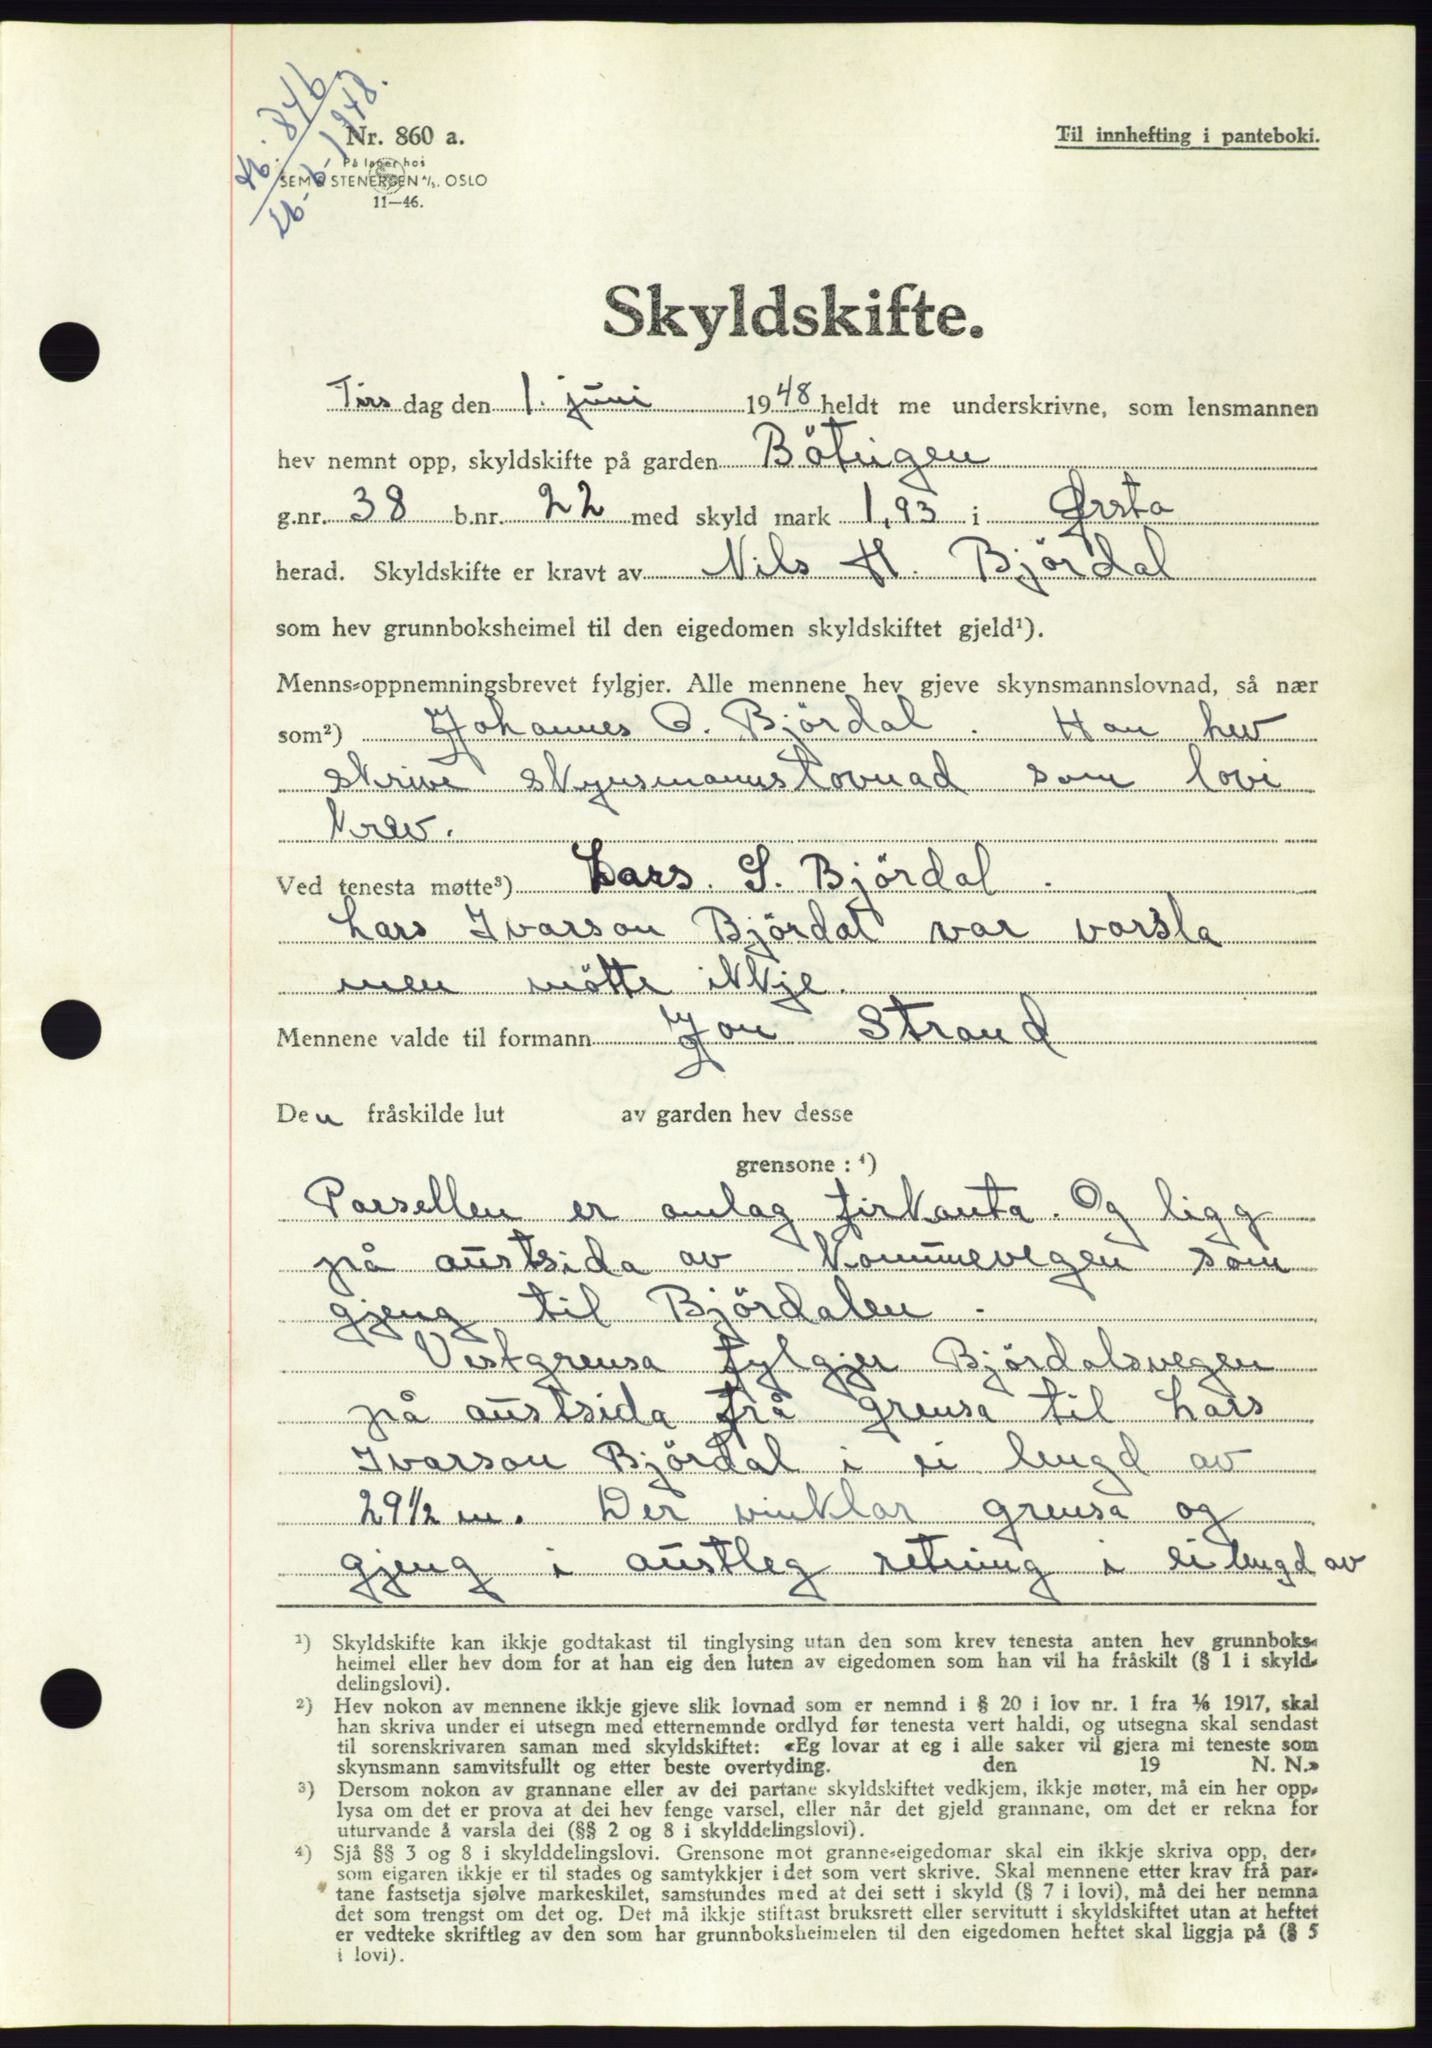 Nr. 860 a.
På lager hos
SEM & STENERSEN A/S. OSLO
11—46.
846
26-6-1948.
Til innhefting i panteboki.
Skyldskifte.
Tirsdag den 1. juni 1948 heldt me underskrivne, som lensmannen
hev nemnt opp, skyldskifte på garden
g.nr. 38 b.nr. 22 med skyld mark 1,93 i Ørsta
herad. Skyldskifte er kravt av Nils H. Björdal
som hev grunnboksheimel til den eigedomen skyldskiftet gjeld¹).
Menns-oppnemningsbrevet fylgjer. Alle mennene hev gjeve skynsmannslovnad, så nær
som²) Johannes O. Björdal. Han hev
skrive skynsmannslovnad som lovi
krev.
Ved tenesta møtte³) Lars. S. Björdal.
Lars Ivarson Björdal var varsla
men mötte ikkje.
Mennene valde til formann Jon Strand
Den fråskilde lut av garden hev desse
grensone: ⁴)
Parsellen er omlag firkanta. Og ligg
på austsida av kommevegen som
gjeng til Björdalen.
Vestgrensa fylgjer Björdalsvegen
på austsida frå grensa til Lars
Ivarson Björdal i ei lengd av
29 1/2 m. Der vinklar grensa og
gjeng i austleg retning i ei lengd av
¹) Skyldskifte kan ikkje godtakast til tinglysing utan den som krev tenesta anten hev grunnboks-
heimel eller hev dom for at han eig den luten av eigedomen som han vil ha fråskilt (§ 1 i skyld-
delingslovi).
²) Hev nokon av mennene ikkje gjeve slik lovnad som er nemnd i § 20 i lov nr. 1 fra 1/6 1917, skal
han skriva under ei utsegn med etternemnde ordlyd før tenesta vert haldi, og utsegna skal sendast
til sorenskrivaren saman med skyldskiftet: «Eg lovar at eg i alle saker vil gjera mi teneste som
skynsmann samvitsfullt og etter beste overtyding. den 19 N. N.»
³) Dersom nokon av grannane eller av dei partane skyldskiftet vedkjem, ikkje møter, må ein her opp-
lysa om det er prova at dei hev fenge varsel, eller når det gjeld grannane, om det er rekna for
uturvande å varsla dei (§§ 2 og 8 i skylddelingslovi).
⁴) Sjå §§ 3 og 8 i skylddelingslovi. Grensone mot granne-eigedomar skal ein ikkje skriva opp, der-
som eigaren ikkje er til stades og samtykkjer i det som vert skrive. Skal mennene etter krav frå par-
tane fastsetja sjølve markeskilet, samstundes med at dei sett i skyld (§ 7 i lovi), må dei her nemna
det som trengst om det og. Det må ikkje stiftast bruksrett eller servitutt i skyldskiftet utan at heftet
er vedteke skriftleg av den som har grunnboksheimelen til den eigedomen heftet skal liggja på (§ 5
i lovi).